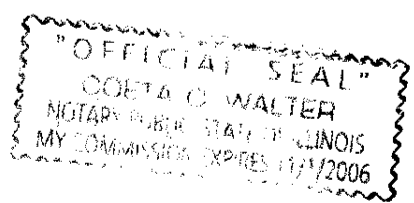 "OFFICIAL SEAL"
WALTER
NOTARY PUBLIC STATE OF ILLINOIS
MY COMMISSION EXPIRES